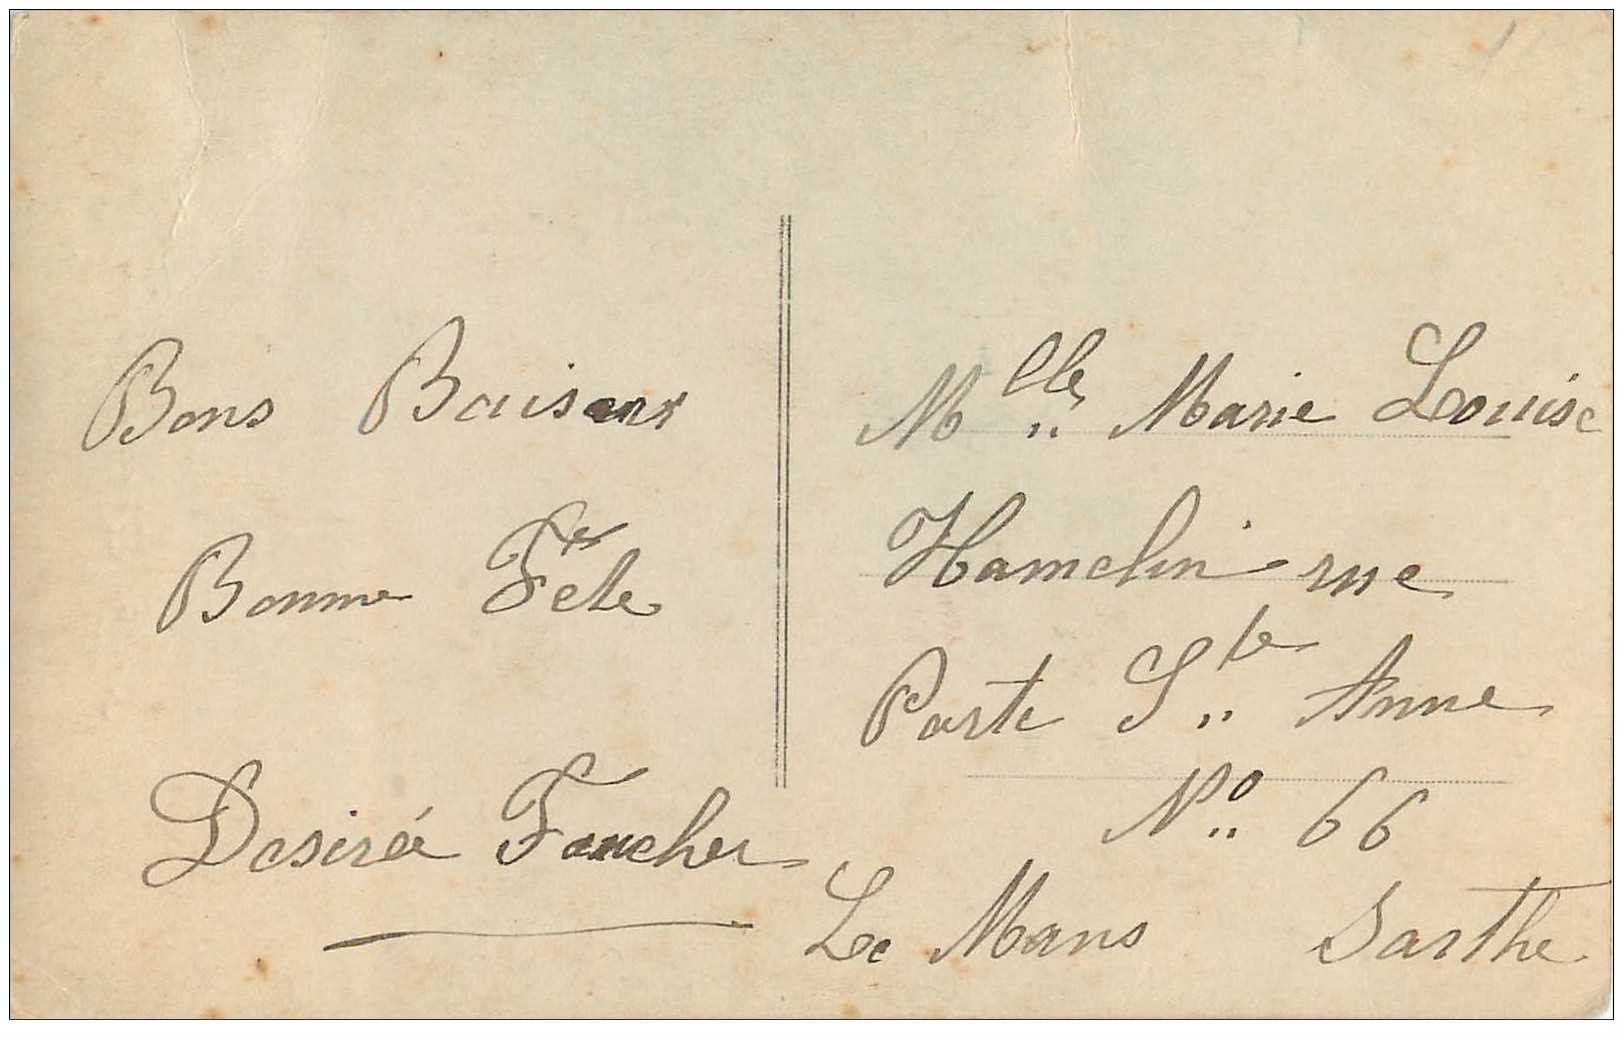 Bons Baisers
Bonne Fête
Desirée Foucher
Mlle Marie Louise
Hamelin rue
Porte Ste Anne
No 66
Le Mans Sarthe